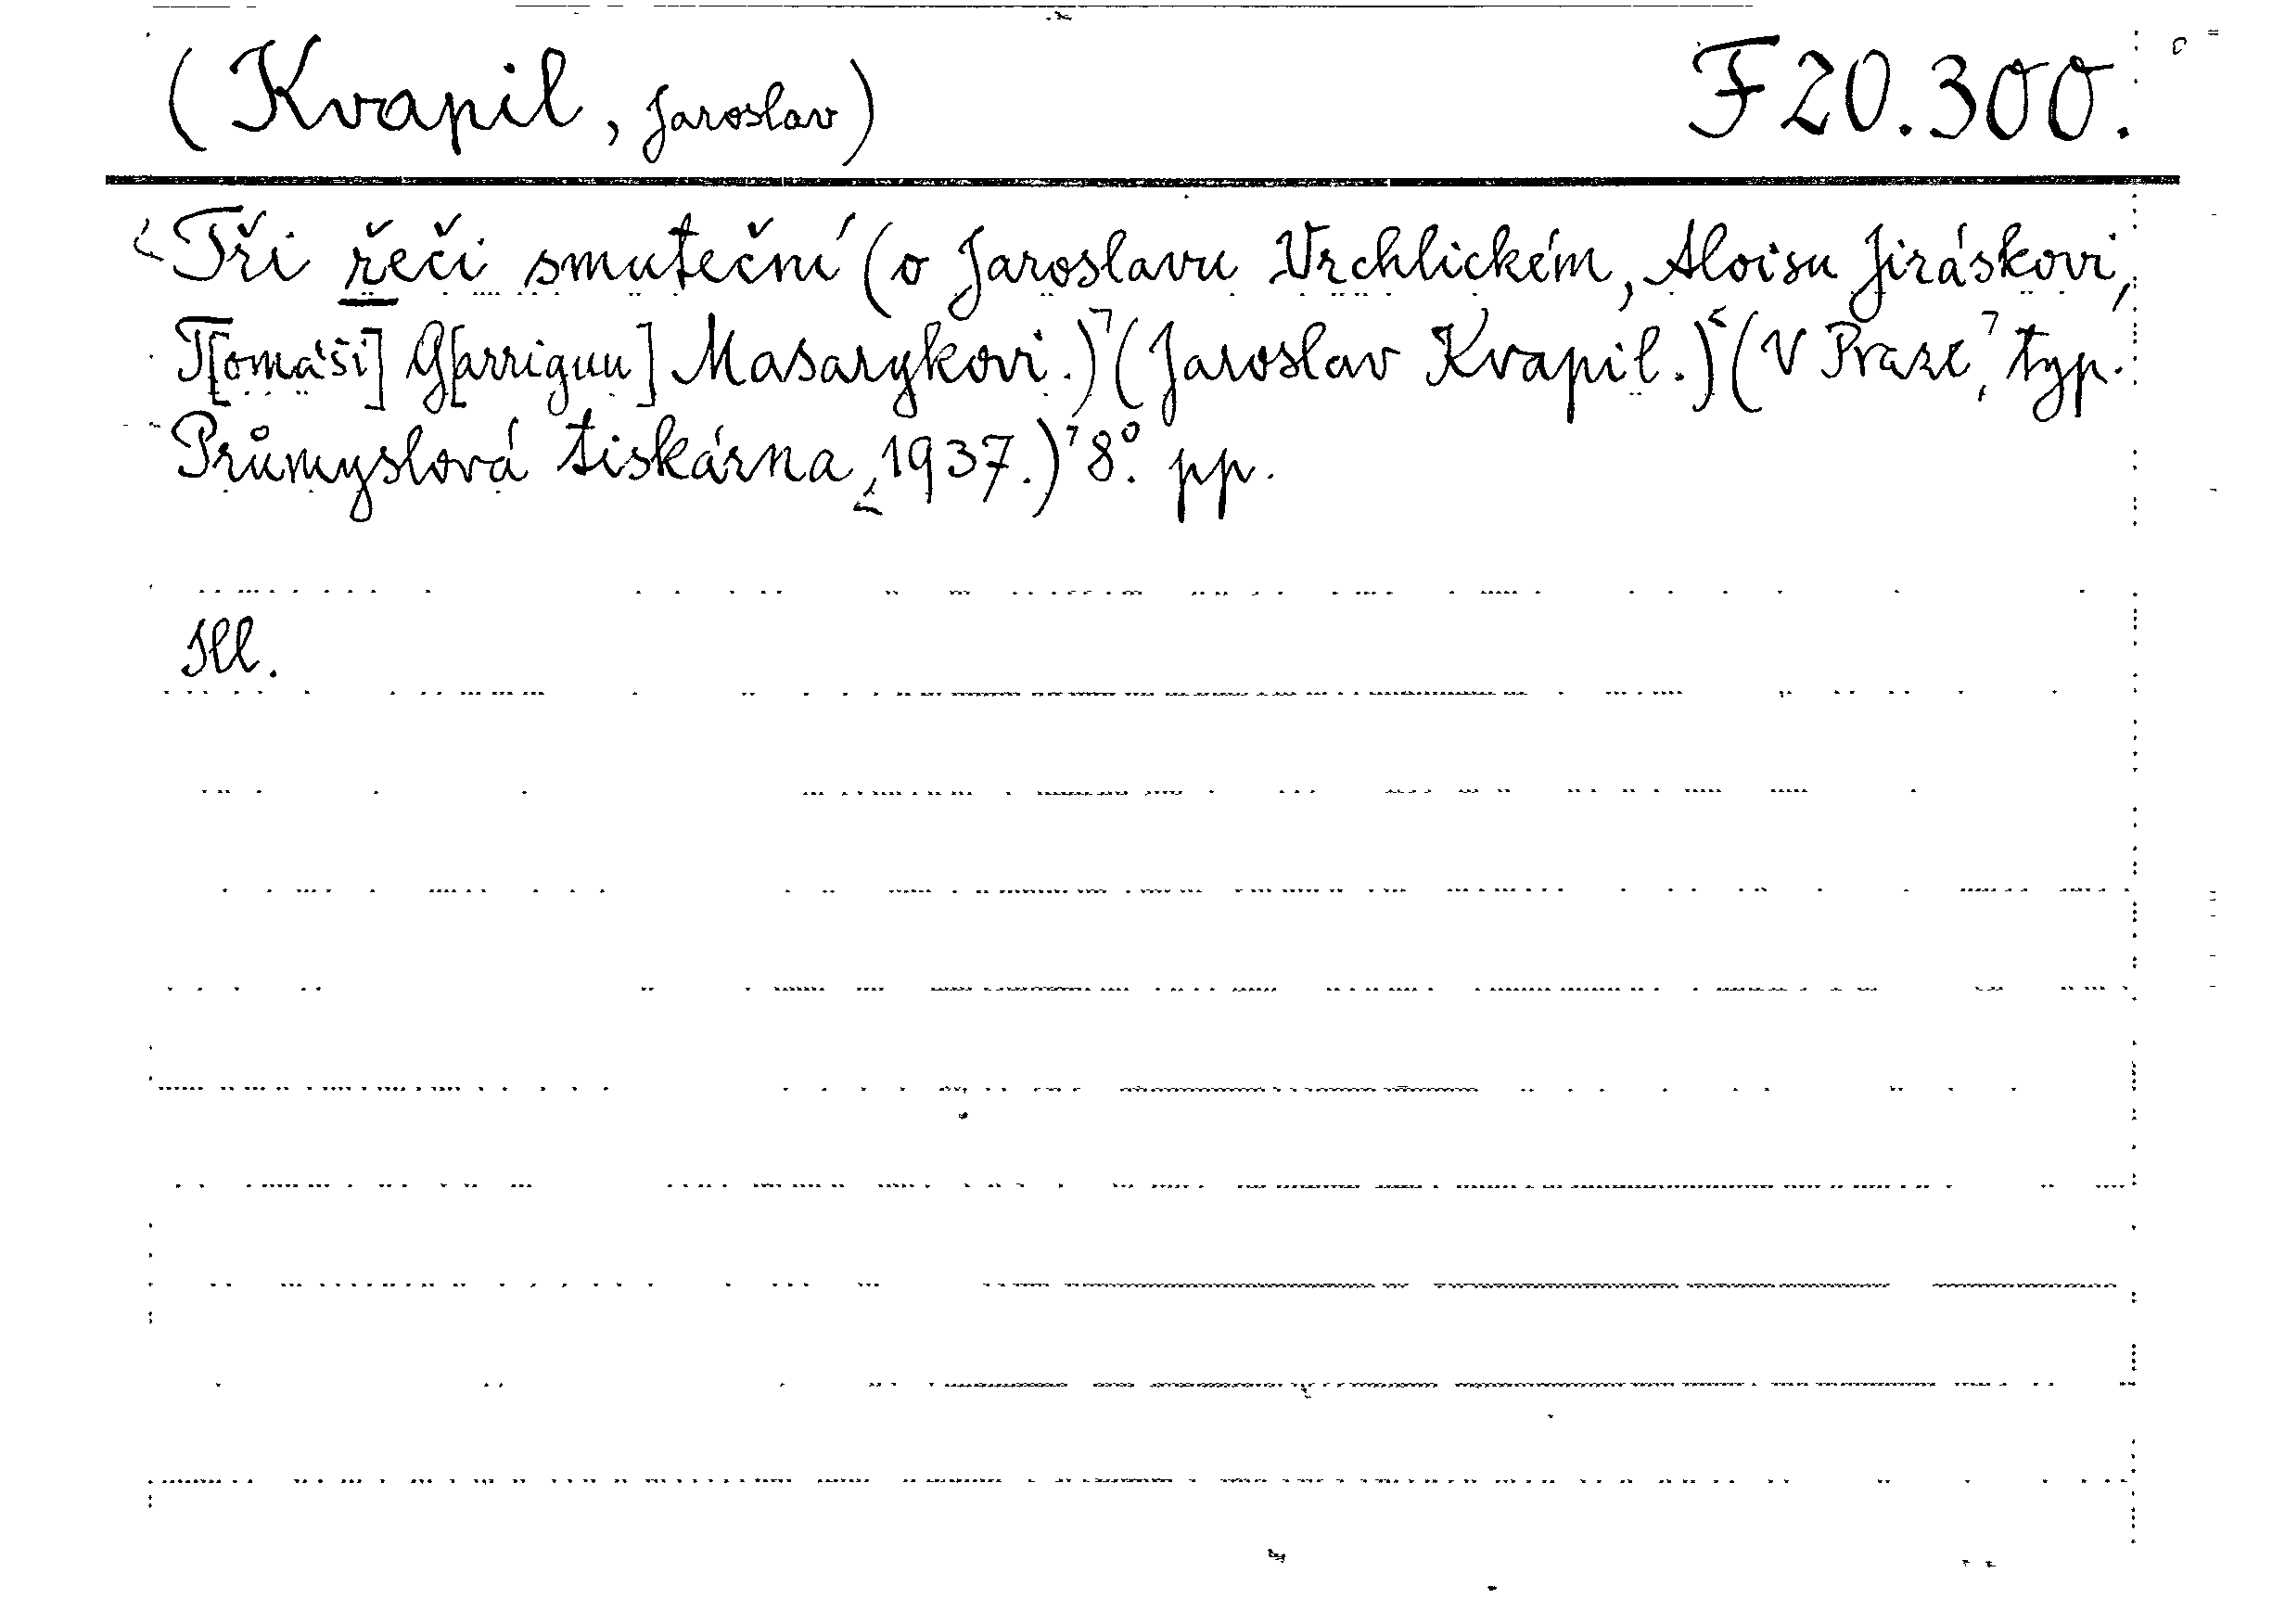 (Kvapil, Jaroslav) F 20.300.
Tři řeči smuteční (o Jaroslavu Vrchlickém, Aloisu Jiráskovi,
T[omáši] G[arriguu] Masarykovi.) (Jaroslav Kvapil.) (V Praze, typ.
Průmyslová tiskárna, 1937.) 8°. pp.
Ill.